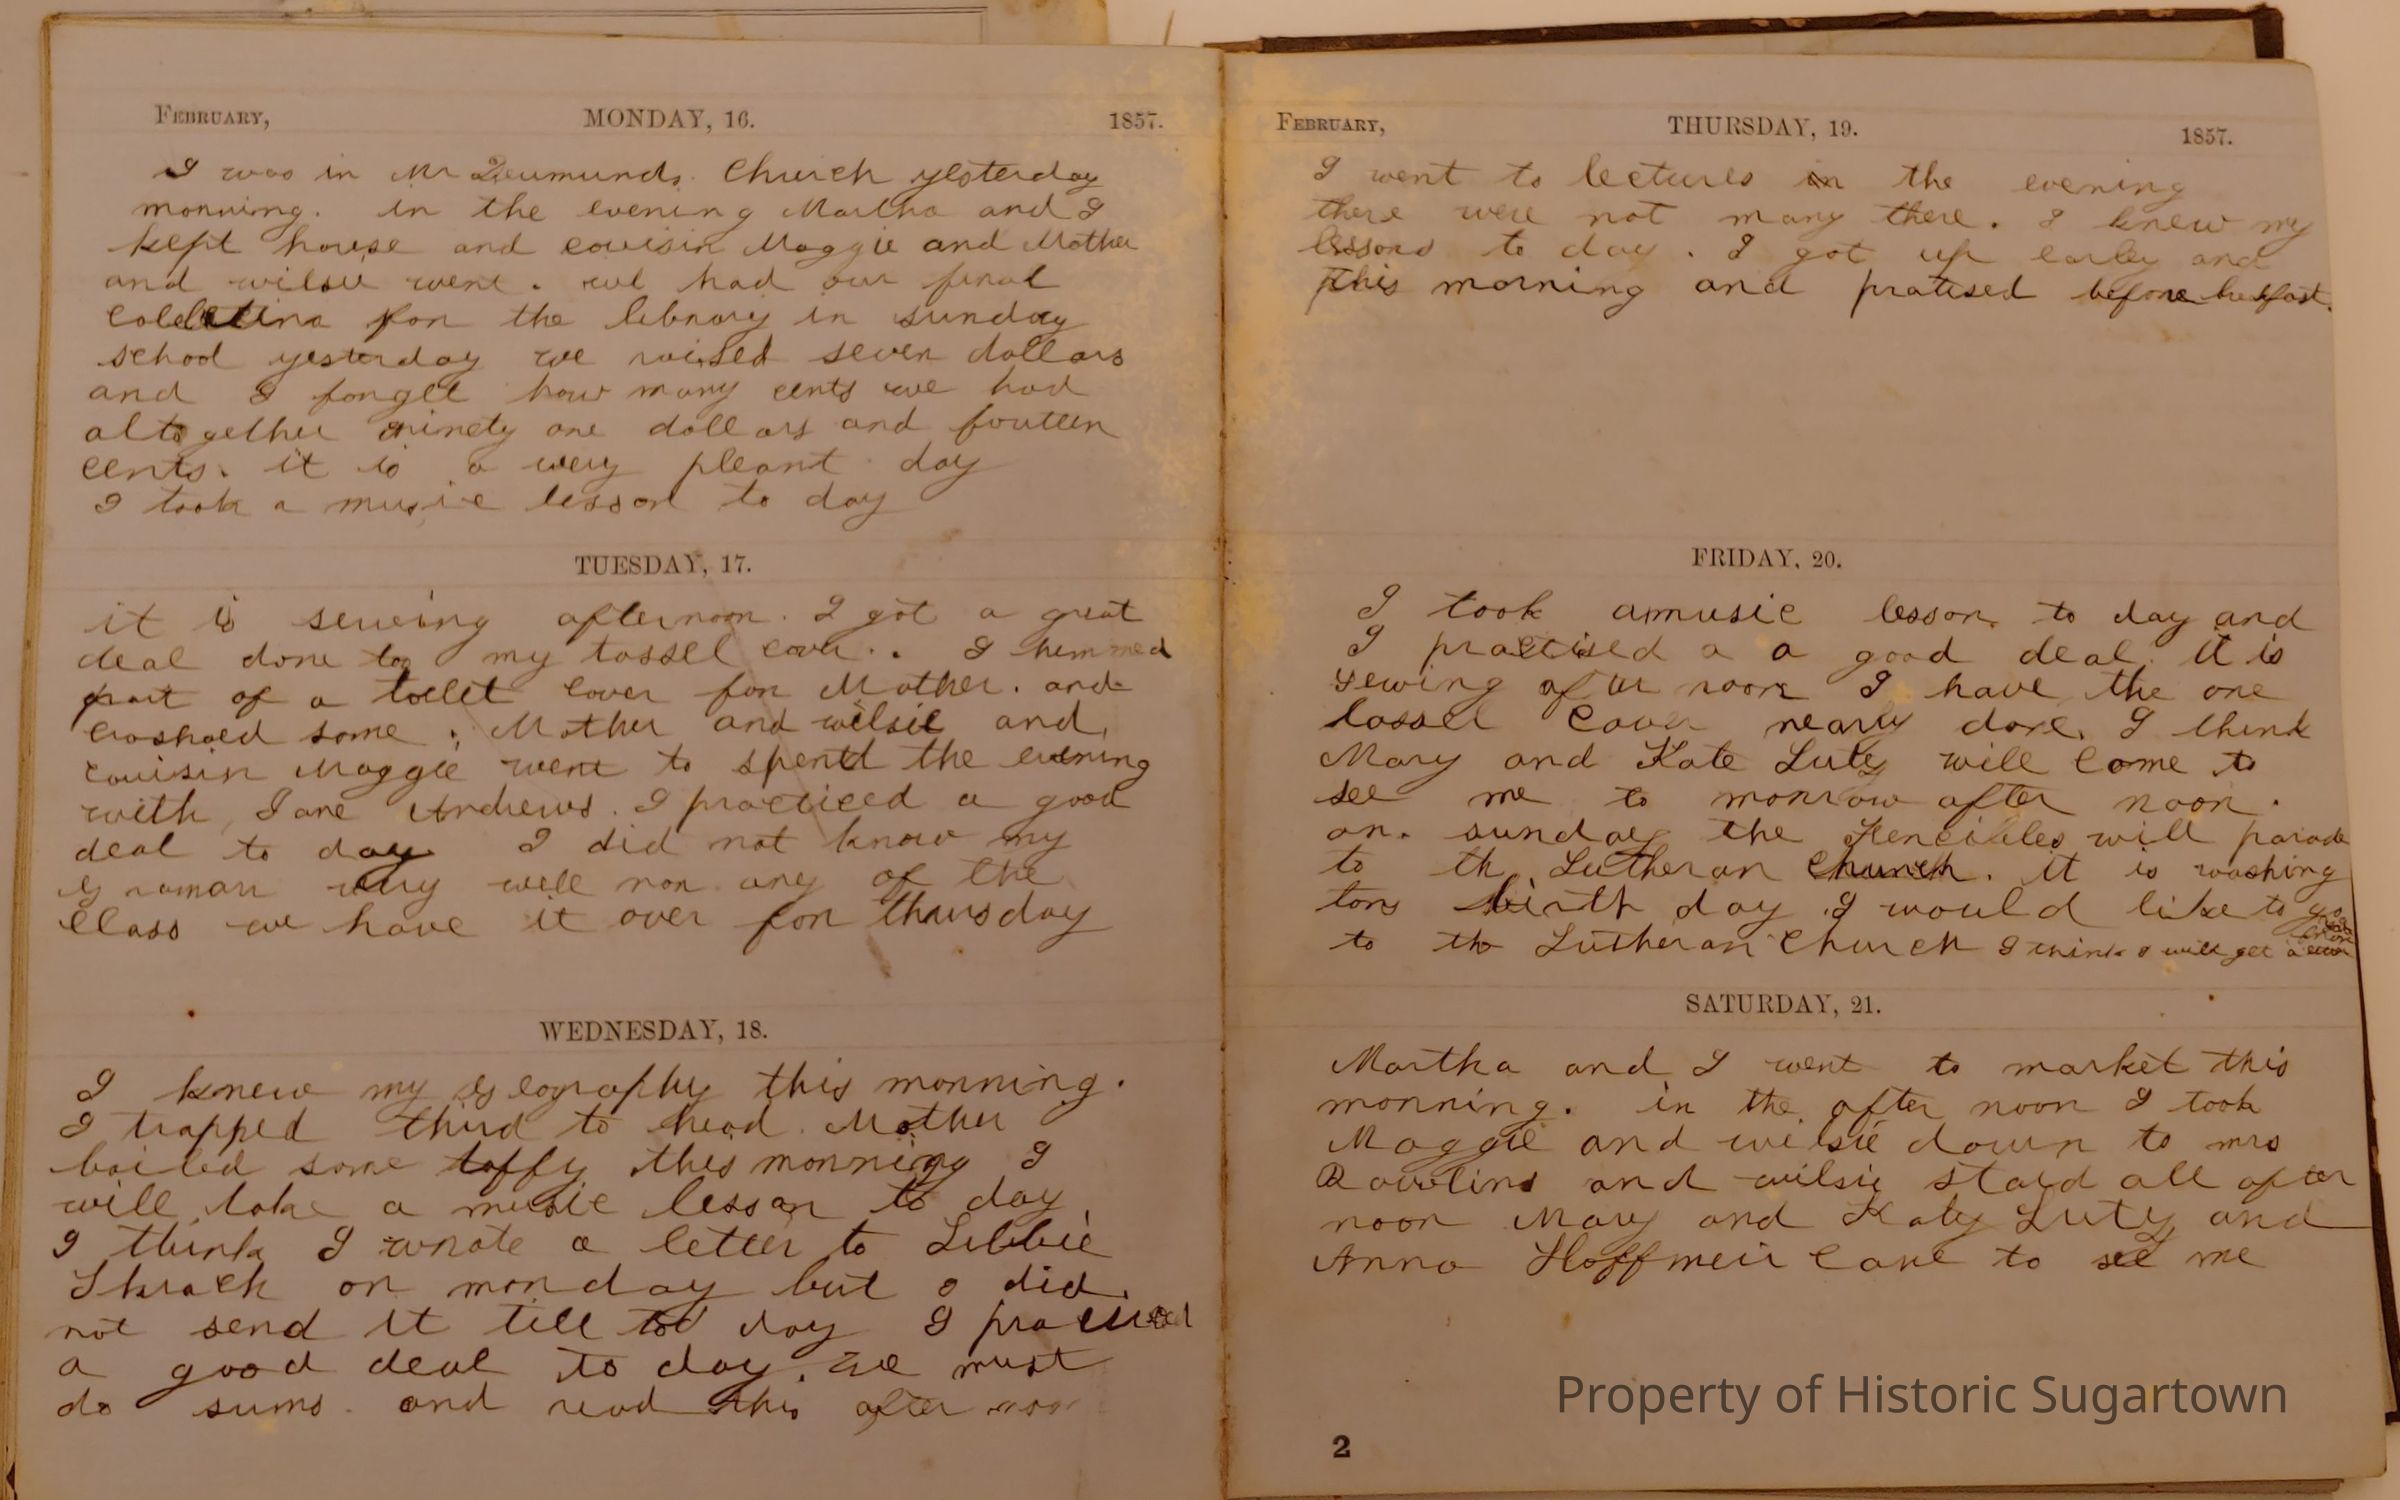 February, MONDAY, 16. 1857.
I was in Mr Drumunds. Church yesterday
monning. in the evening Martha and I
kept house and couisin Maggie and Mother
and wilsie went. we had our final
for the libnary in sunday
school yesterday we raised seven dollars
and I fonget how many cents we had
altogether ninety one dollars and fouteen
cents. it is a very pleant day
I took a music lesson to day
TUESDAY, 17.
it is sewing afternoon. I got a great
deal done to my tossel cover.. I hemmed
part of a toilet cover fon Mother. and
croshaed some. Mother and wilsie and
couisin Maggie went to spend the evening
with Jane Andrews. I practiced a good
deal to day I did not know my
very well non any of the
Class we have it over fon thursday
WEDNESDAY, 18.
I knew my Geography this monning.
I trapped third to head. Mother
boiled some taffy this monning I
will take a music lesson to day
I think I wnote a letter to Libbie
on monday but I did
not send it till to day I practised
a good deal to day. we must
do sums. and read this after noon
February, THURSDAY, 19. 1857.
I went to lectures in the evening
there were not many there. I knew my
lessons to day. I got up earley and
this morning and pratised before brekfast.
FRIDAY, 20.
I took amusic lesson to day and
I practised a a good deal. it is
sewing after noon I have the one
tossel Cover nearly done. I think
Mary and Kate Luty will Come to
see me to monrow after noon.
on. sunday the Fencibles will parade
to th Lutheran Church. it is washing
tons birth day I would like to go
to th Lutheran Church I think I will get a
SATURDAY, 21.
Martha and I went to market this
monning. in the after noon I took
Maggie and wilsie down to mrs
Rawlins and wilsie staid all after
noon Mary and Katy Luty and
Anna Hoffmeir Came to see me
2
Property of Historic Sugartown